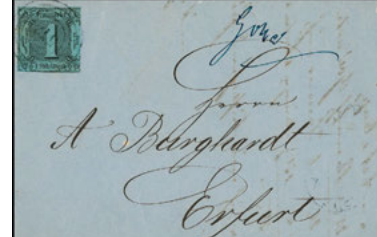 1
Herrn
A Burghardt
Erfurt